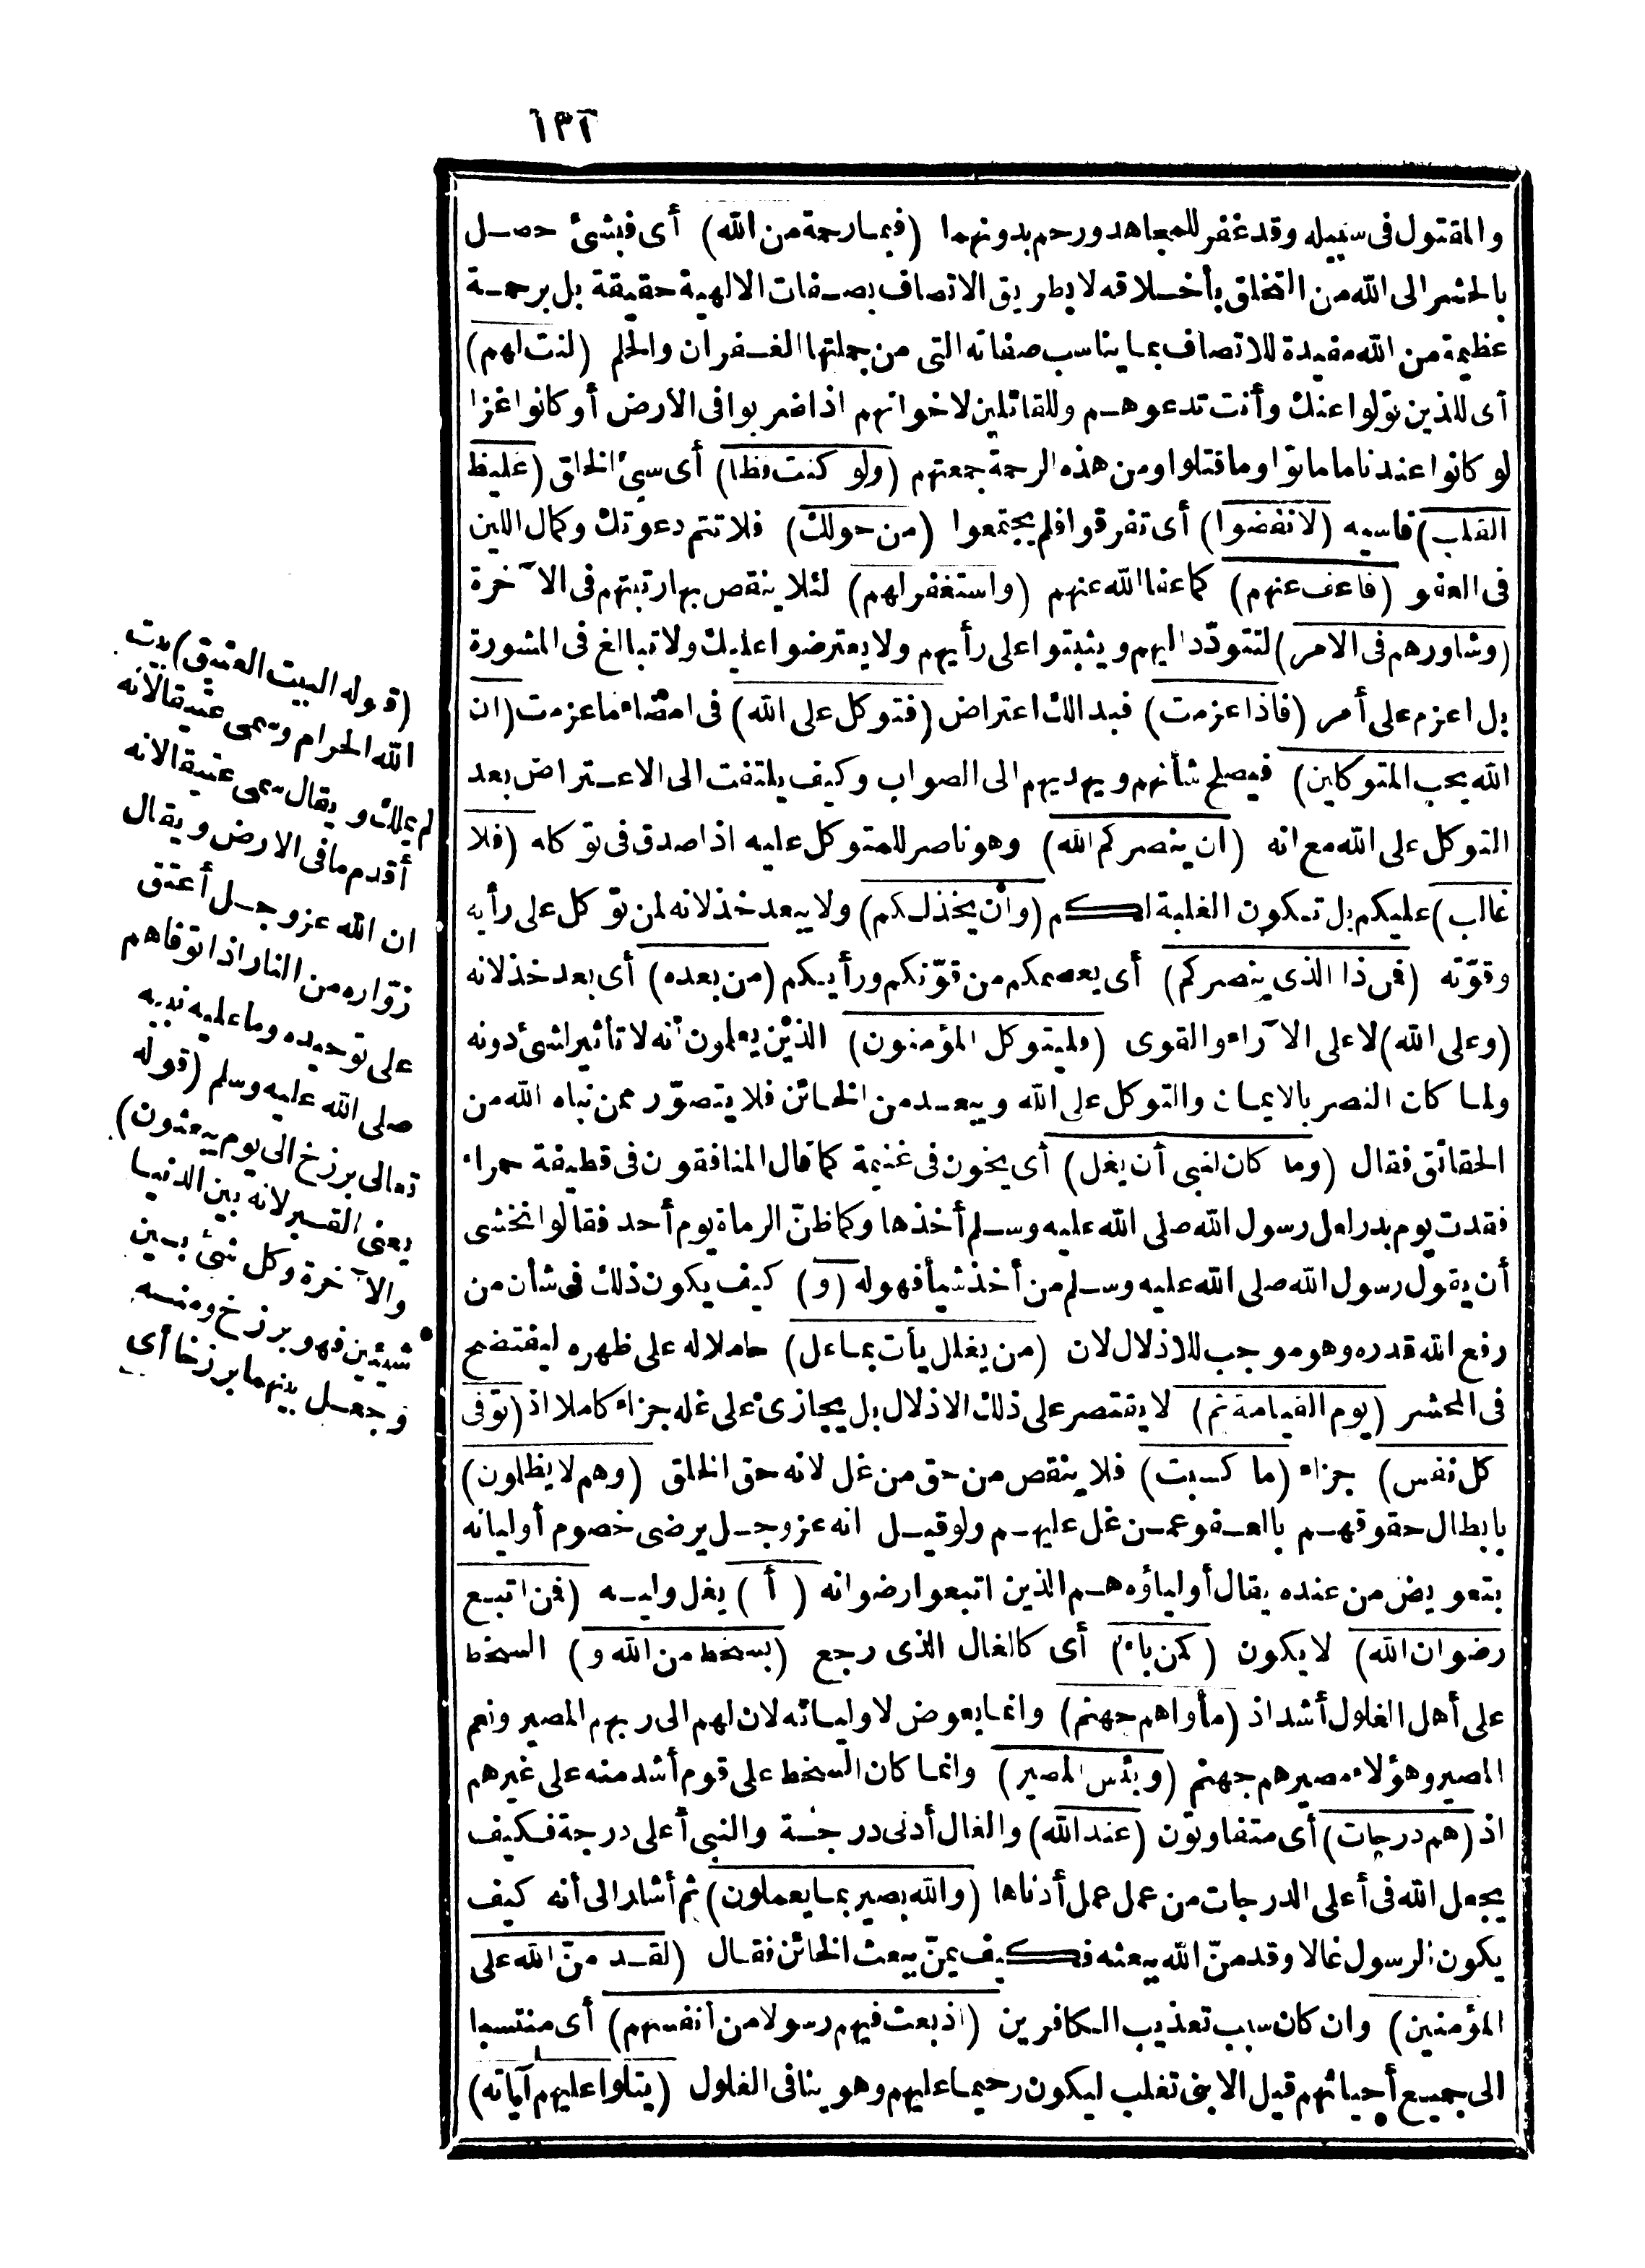 ١٣٢
والمقتول فى سبيله وقد غفر للمجاهد ورحم بدونهما (فبما رحمة من الله) أى فبشئ حصل
بالحشر الى الله من التخلق بأخلاقه لا بطريق الاتصاف بصفات الالهية حقيقة بل برحمة
عظيمة من الله مفيدة للاتصاف بما يناسب صفاته التى من جملتها الغفران والحلم (لنت لهم)
أى للذين تولوا عنك وأنت تدعوهم وللقائلين لاخوانهم اذا ضربوا فى الارض أو كانوا غزا
لو كانوا عندنا ما ماتوا وما قتلوا ومن هذه الرحمة جمعتهم (ولو كنت فظا) أى سئ الخلق (غليظ
القلب) قاسيه (لانفضوا) أى تفرقوا فلم يجتمعوا (من حولك) فلا تتم دعوتك وكمال اللين
فى العفو (فاعف عنهم) كما عفا الله عنهم (واستغفر لهم) لئلا ينقص بها رتبتهم فى الآخرة
(وشاورهم فى الامر) لتتودّد اليهم ويثبتوا على رأيهم ولا يعترضوا عليك ولا تبالغ فى المشورة
بل اعزم على أمر (فاذا عزمت) فبدا لك اعتراض (فتوكل على الله) فى امضاء ما عزمت (ان
الله يحب المتوكلين) فيصلح شأنهم ويهديهم الى الصواب وكيف يلتفت الى الاعتراض بعد
التوكل على الله مع انه (ان ينصركم الله) وهو ناصر للمتوكل عليه اذا صدق فى توكله (فلا
غالب) عليكم بل تكون الغلبة لكم (وان يخذلكم) ولا يبعد خذلانه لمن توكل على رأيه
وقوّته (فمن ذا الذى ينصركم) أى يعصمكم من قوّتكم ورأيكم (من بعده) أى بعد خذلانه
(وعلى الله) لا على الآراء والقوى (فليتوكل المؤمنون) الذين يعلمون أنه لا تأثير لشئ دونه
ولما كان النصر بالايمان والتوكل على الله ويبعد من الخائن فلا يتصوّر ممن نباه الله من
الحقائق فقال (وما كان لنبى أن يغل) أى يخون فى غنيمة كما قال المنافقون فى قطيفة حمراء
فقدت يوم بدر لعل رسول الله صلى الله عليه وسلم أخذها وكما ظنّ الرماة يوم أحد فقالوا نخشى
أن يقول رسول الله صلى الله عليه وسلم من أخذ شيأ فهو له (و) كيف يكون ذلك فى شأن من
رفع الله قدره وهو موجب للاذلال لان (من يغلل يأت بما غل) حاملا له على ظهره ليفتضح
فى المحشر (يوم القيامة ثم) لا يقتصر على ذلك الاذلال بل يجازى على غله جزاء كاملا اذ (توفى
كل نفس) جزاء (ما كسبت) فلا ينقص من حق من غل لانه حق الخلق (وهم لا يظلمون)
بابطال حقوقهم بالعفو عمن غل عليهم ولو قيل انه عز وجل يرضى خصوم أوليائه
بتعويض من عنده يقال أولياؤه هم الذين اتبعوا رضوانه (أ) يغل وليه (فمن اتبع
رضوان الله) لا يكون (كمن باء) أى كالغال الذى رجع (بسخط من الله و) السخط
على أهل الغلول أشد اذ (مأواهم جهنم) وانما يعوض لاوليائه لان لهم الى ربهم المصير ونعم
المصير وهؤلاء مصيرهم جهنم (وبئس المصير) وانما كان السخط على قوم أشد منه على غيرهم
اذ (هم درجات) أى متفاوتون (عند الله) والغال أدنى درجة والنبى أعلى درجة فكيف
يجعل الله فى أعلى الدرجات من عمل عمل أدناها (والله بصير بما يعملون) ثم أشار الى أنه كيف
يكون الرسول غالا وقد منّ الله ببعثه فكيف يمنّ ببعث الخائن فقال (لقد منّ الله على
المؤمنين) وان كان سبب تعذيب الكافرين (اذ بعث فيهم رسولا من أنفسهم) أى منتسبا
الى جميع أحيائهم قيل الا بنى تغلب ليكون رحيما عليهم وهو ينافى الغلول (يتلوا عليهم آياته)
(قوله البيت العتيق) بيت
الله الحرام وسمى عتيقا لانه
لم يملك ويقال سمى عتيقا لانه
أقدم ما فى الارض ويقال
ان الله عز وجل أعتق
زوّاره من النار اذا توفاهم
على توحيده وما عليه نبيه
صلى الله عليه وسلم (قوله
تعالى برزخ الى يوم يبعثون)
يعنى القبر لانه بين الدنيا
والآخرة وكل شئ بين
شيئين فهو برزخ ومنه
وجعل بينهما برزخا أى